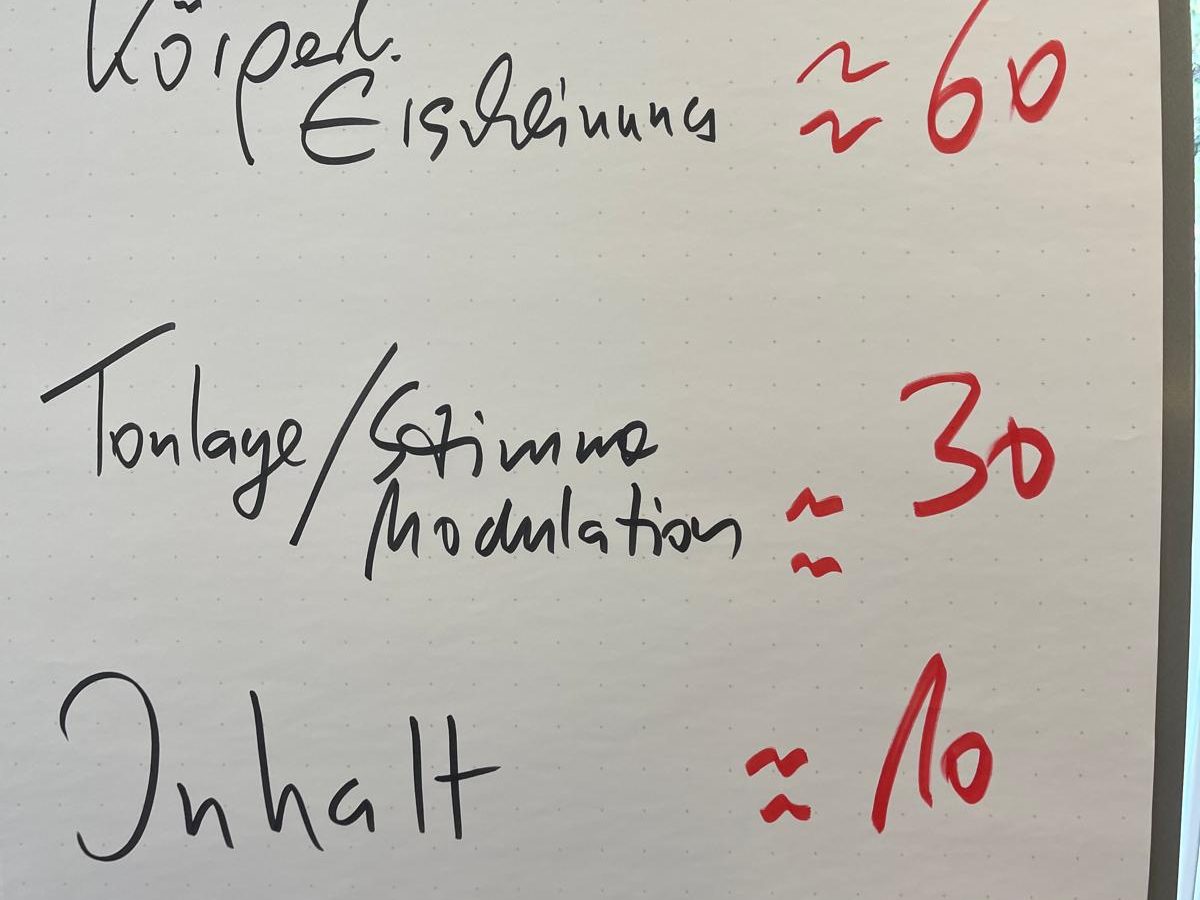 Körperl.
Erscheinung ≈ 60
Tonlage/Stimme
Modulation ≈ 30
Inhalt ≈ 10